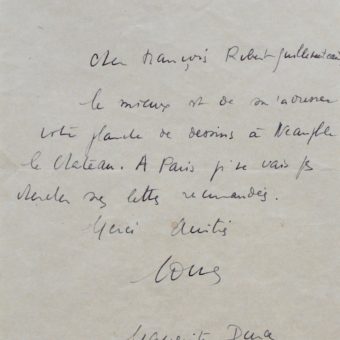 Cher François Robert Guillemi
le mieux est de m'adresser
votre planche de dessins à Neauphle
le Chateau. A Paris je ne vais pas
chercher les lettres recomandés.
Merci Amitié
Marguerite Dura